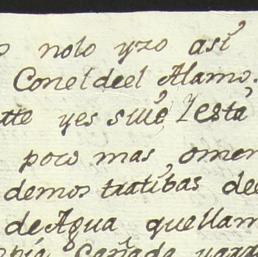 nolo yzo así
Conel deel Alamo.
yes sure, Iesta
poco mas, omen
demos tratibas de
de Agua quellam
Cañada